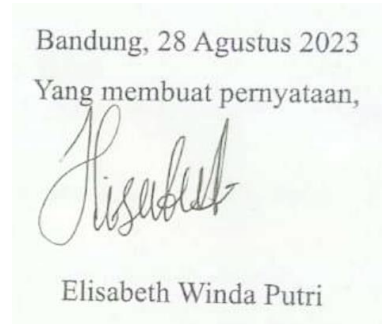 Bandung, 28 Agustus 2023
Yang membuat pernyataan,
Elisabeth Winda Putri